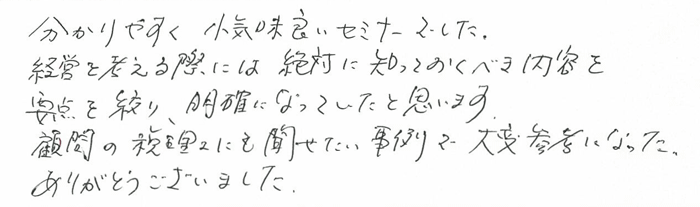 分かりやすく 小気味良いセミナーでした。
経営を考える際には 絶対に知っておくべき内容を
要点を絞り、明確になっていたと思います。
顧問の税理士にも聞せたい事例で 大変参考になった。
ありがとうございました。